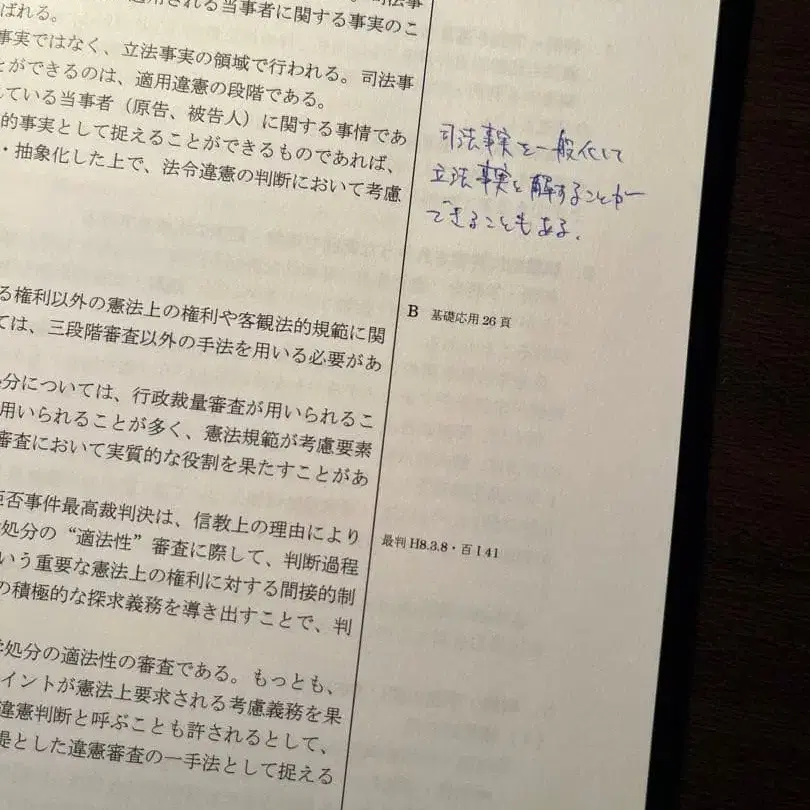 用される当事者に関する事実のこ
ばれる。
事実ではなく、立法事実の領域で行われる。司法事
とができるのは、適用違憲の段階である。
している当事者（原告、被告人）に関する事情であ
的事実として捉えることができるものであれば、
・抽象化した上で、法令違憲の判断において考慮
司法事実を一般化して
立法事実と解することが
できることもある.
る権利以外の憲法上の権利や客観法的規範に関
ては、三段階審査以外の手法を用いる必要があ
B 基礎応用26頁
処分については、行政裁量審査が用いられるこ
用いられることが多く、憲法規範が考慮要素
審査において実質的な役割を果たすことがあ
拒否事件最高裁判決は、信教上の理由により
処分の“適法性”審査に際して、判断過程
いう重要な憲法上の権利に対する間接的制
の積極的な探求義務を導き出すことで、判
最判H8.3.8・百Ⅰ41
処分の適法性の審査である。もっとも、
イントが憲法上要求される考慮義務を果
違憲判断と呼ぶことも許されるとして、
提とした違憲審査の一手法として捉える